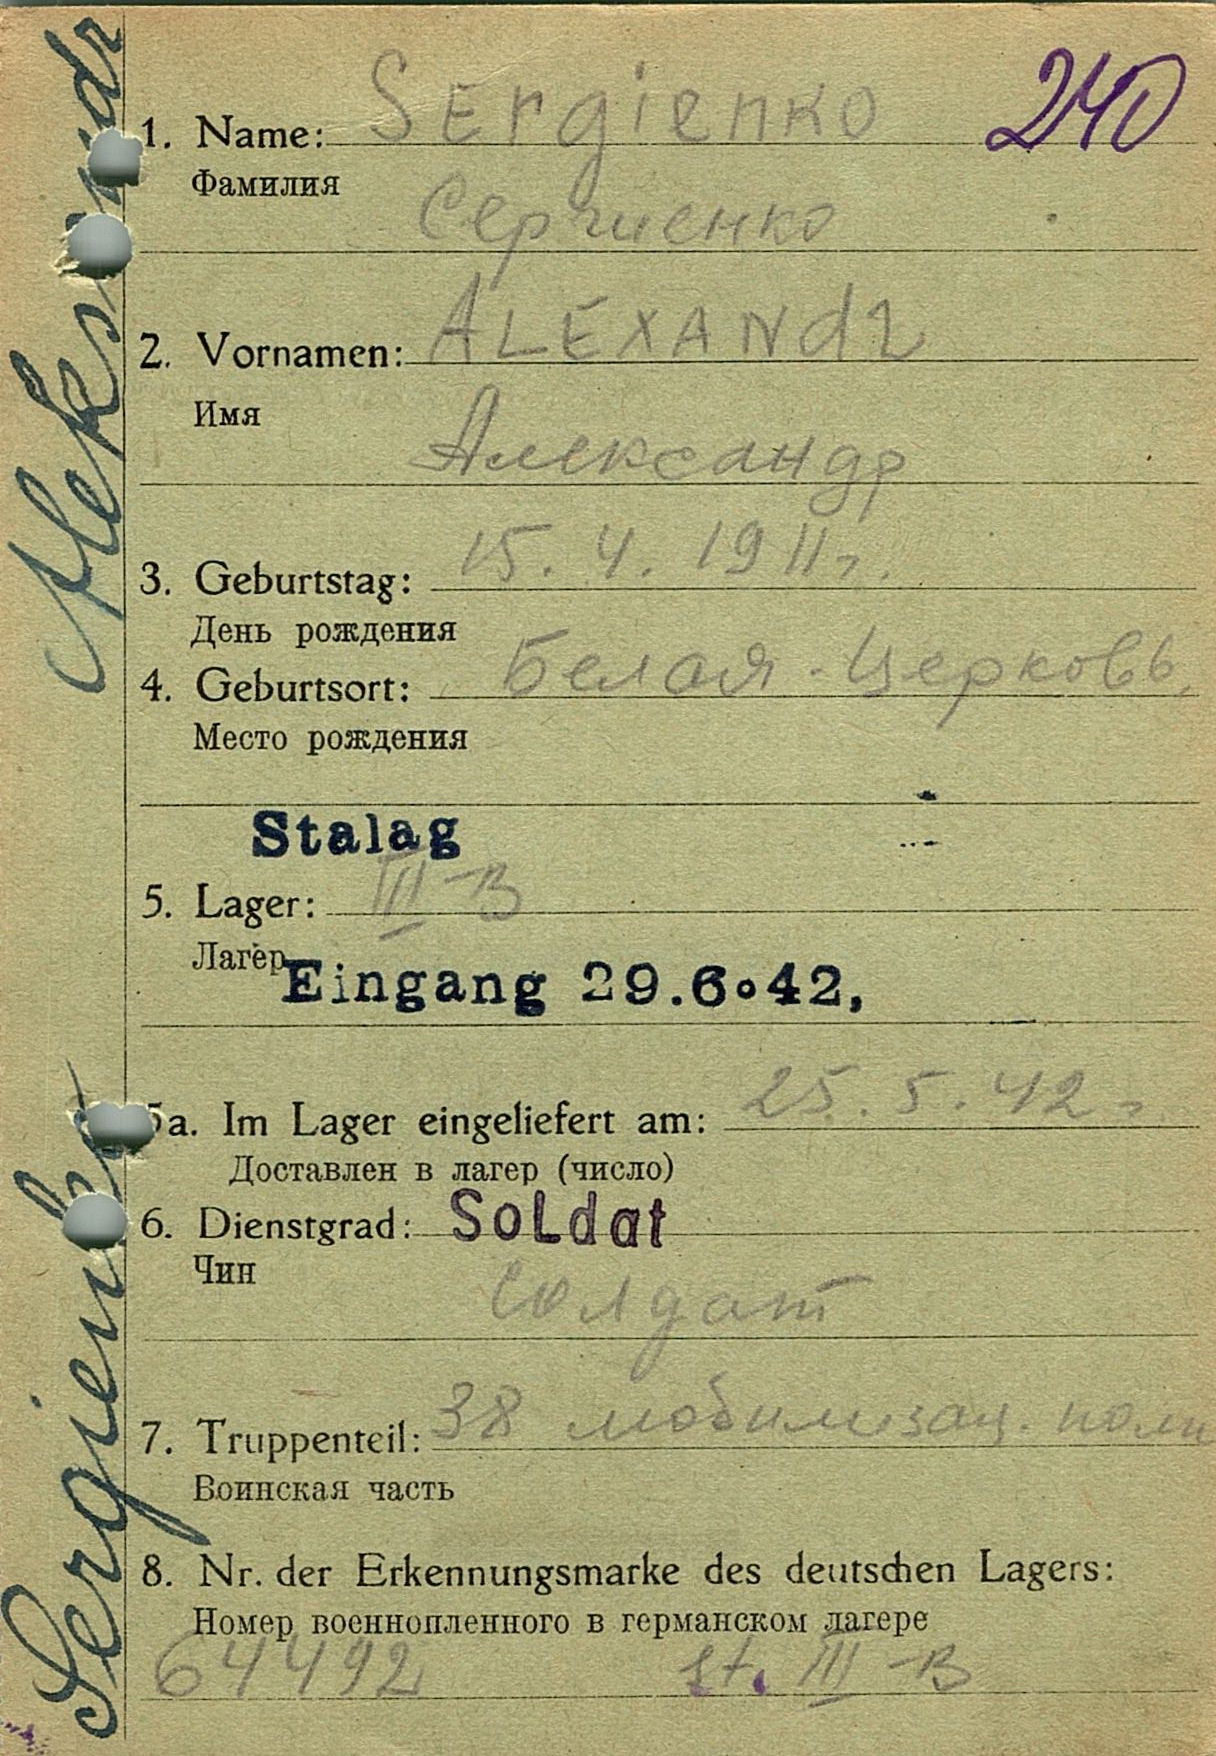 240
1. Name: Sergienko
Фамилия
Сергиенко
2. Vornamen: ALEXANdr
Имя
Александр
3. Geburtstag: 15. 4. 1911 г.
День рождения
4. Geburtsort: Белая-Церковь,
Место рождения
Stalag
5. Lager: III-B
Лагер
Eingang 29.6.42,
5a. Im Lager eingeliefert am: 25. 5. 42 г.
Доставлен в лагер (число)
6. Dienstgrad: Soldat
Чин
Солдат
7. Truppenteil: 38 мобилизац. полк
Воинская часть
8. Nr. der Erkennungsmarke des deutschen Lagers:
Номер военнопленного в германском лагере
64492 St. III-B
Sergienko Aleksandr